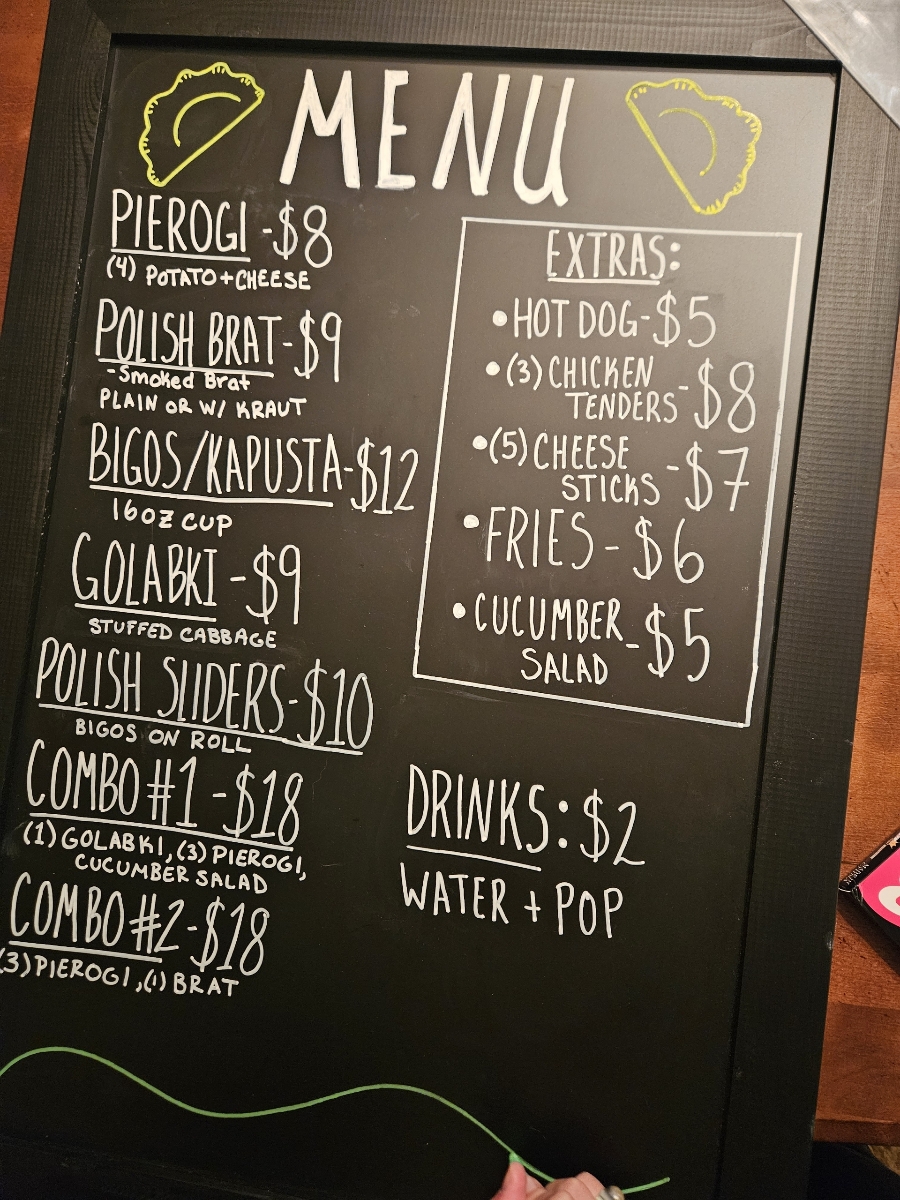 MENU
PIEROGI -$8
(4) POTATO+CHEESE
POLISH BRAT-$9
-Smoked Brat
PLAIN OR W/ KRAUT
BIGOS/KAPUSTA-$12
16OZ CUP
GOLABKI -$9
STUFFED CABBAGE
POLISH SLIDERS-$10
BIGOS ON ROLL
COMBO #1 -$18
(1) GOLABKI, (3) PIEROGI,
CUCUMBER SALAD
COMBO #2-$18
(3) PIEROGI, (1) BRAT
EXTRAS:
•HOT DOG-$5
•(3) CHICKEN
TENDERS-$8
•(5) CHEESE
STICKS -$7
•FRIES-$6
•CUCUMBER
SALAD -$5
DRINKS: $2
WATER + POP